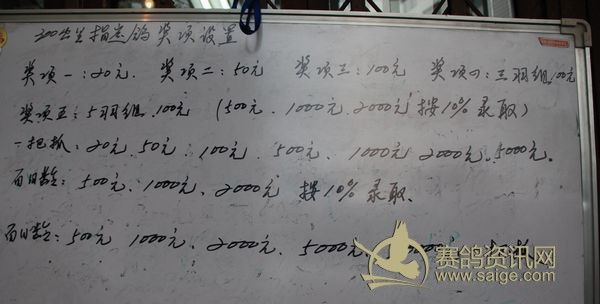 200公里指定鸽奖项设置
奖项一:20元. 奖项二:50元 奖项三:100元 奖项四:三羽组100元
奖项五:5羽组.100元 (500元、1000元.2000元按10%录取)
一把抓:20元.50元.100元、500元、1000元2000元、5000元.
百日数: 500元、1000元、2000元 按10%录取.
百日数:500元 1000元、2000元、5000元、
赛鸽资讯网
www.saige.com